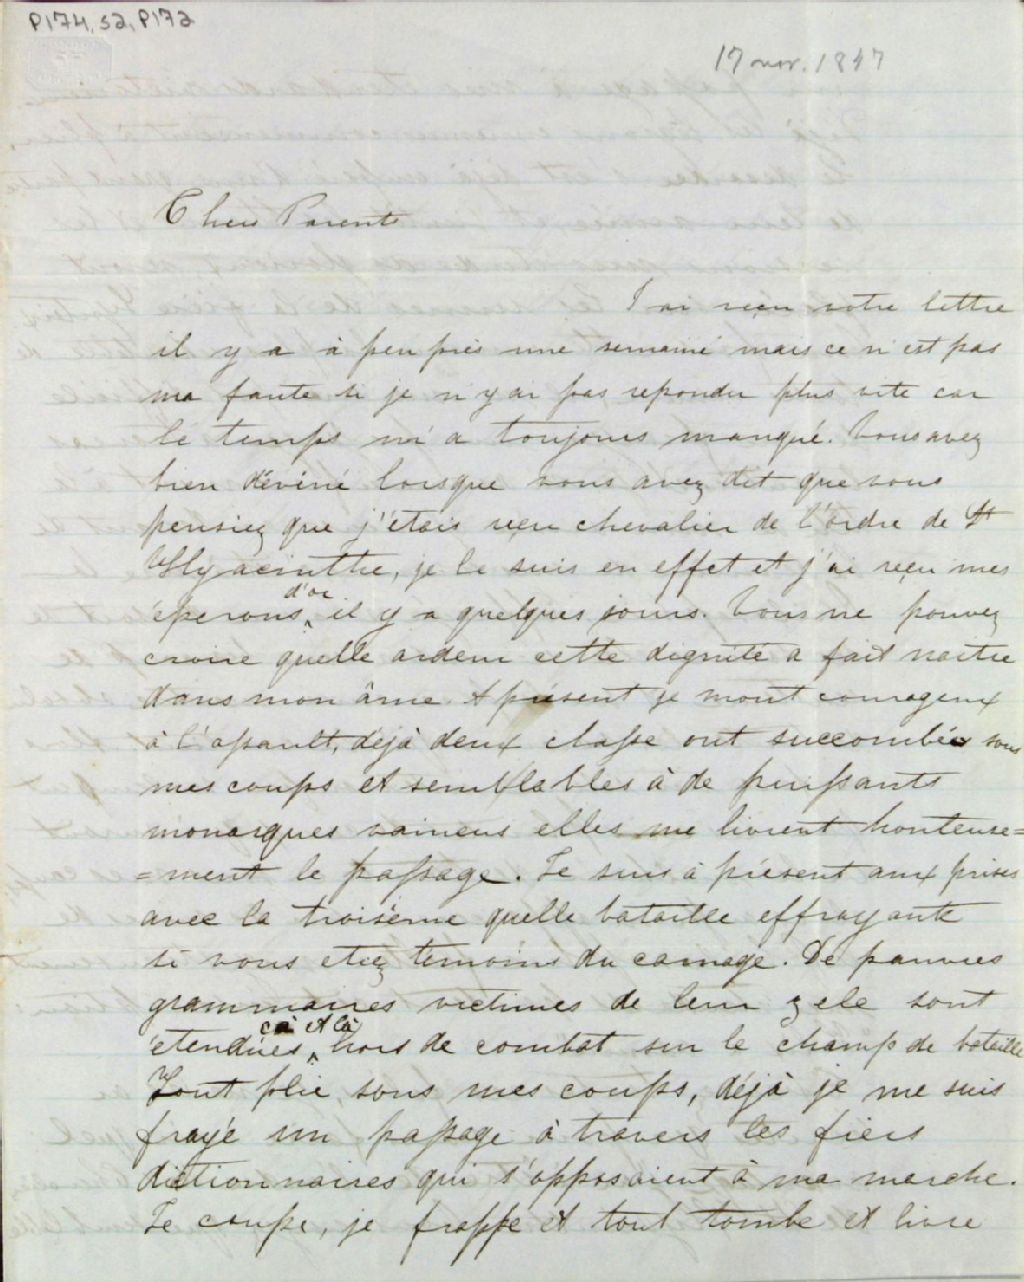 P174, S2, P172
17 nov. 1847
Chers Parents
J ai reçu votre lettre
il y a à peu près une semaine mais ce n'est pas
ma faute si je n'y ai pas repondu plus vite car
le temps m'a toujours manqué. Vous avez
bien déviné lorsque vous avez dit que vous
pensiez que j'étais reçu chevalier de l'ordre de St
Hyacinthe, je le suis en effet et j'ai reçu mes
d'or
éperons, il y a quelques jours. Vous ne pouvez
croire quelle ardeur cette dignité a fait naitre
dans mon âme. A présent je mont courageux
à l'assault, déjà deux classe ont succombée sous
mes coups et semblables à de puissants
monarques vaincus elles me livrent honteuse=
=ment le passage. Je suis à présent aux prises
avec la troisème quelle bataille effrayante
si vous etiez témoins du carnage. De pauvres
grammaires victimes de leur zele sont
cà et là
étendues, hors de combat sur le champ de bataille
Tout plie sous mes coups, déjà je me suis
frayé un passage à travers les fiers
dictionnaires qui s'opposaient à ma marche.
Je coupe, je frappe et tout tombe et livre